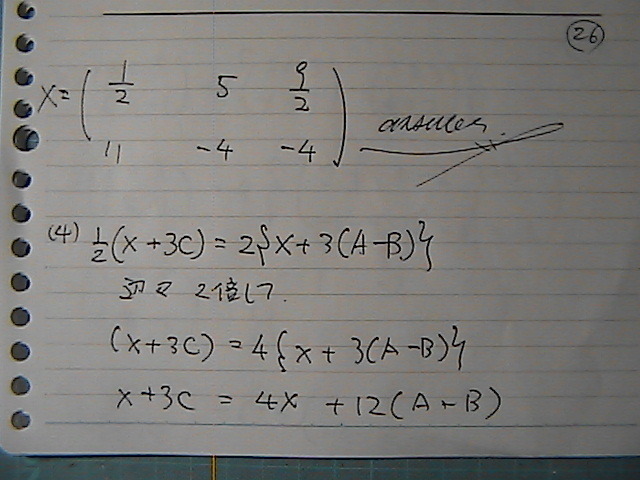 26
X = ( 1/2 5 9/2
11 -4 -4 ) answer.
(4) 1/2 (X + 3C) = 2{X + 3(A - B)}
辺々 2倍して.
(X + 3C) = 4{X + 3(A - B)}
X + 3C = 4X + 12(A - B)